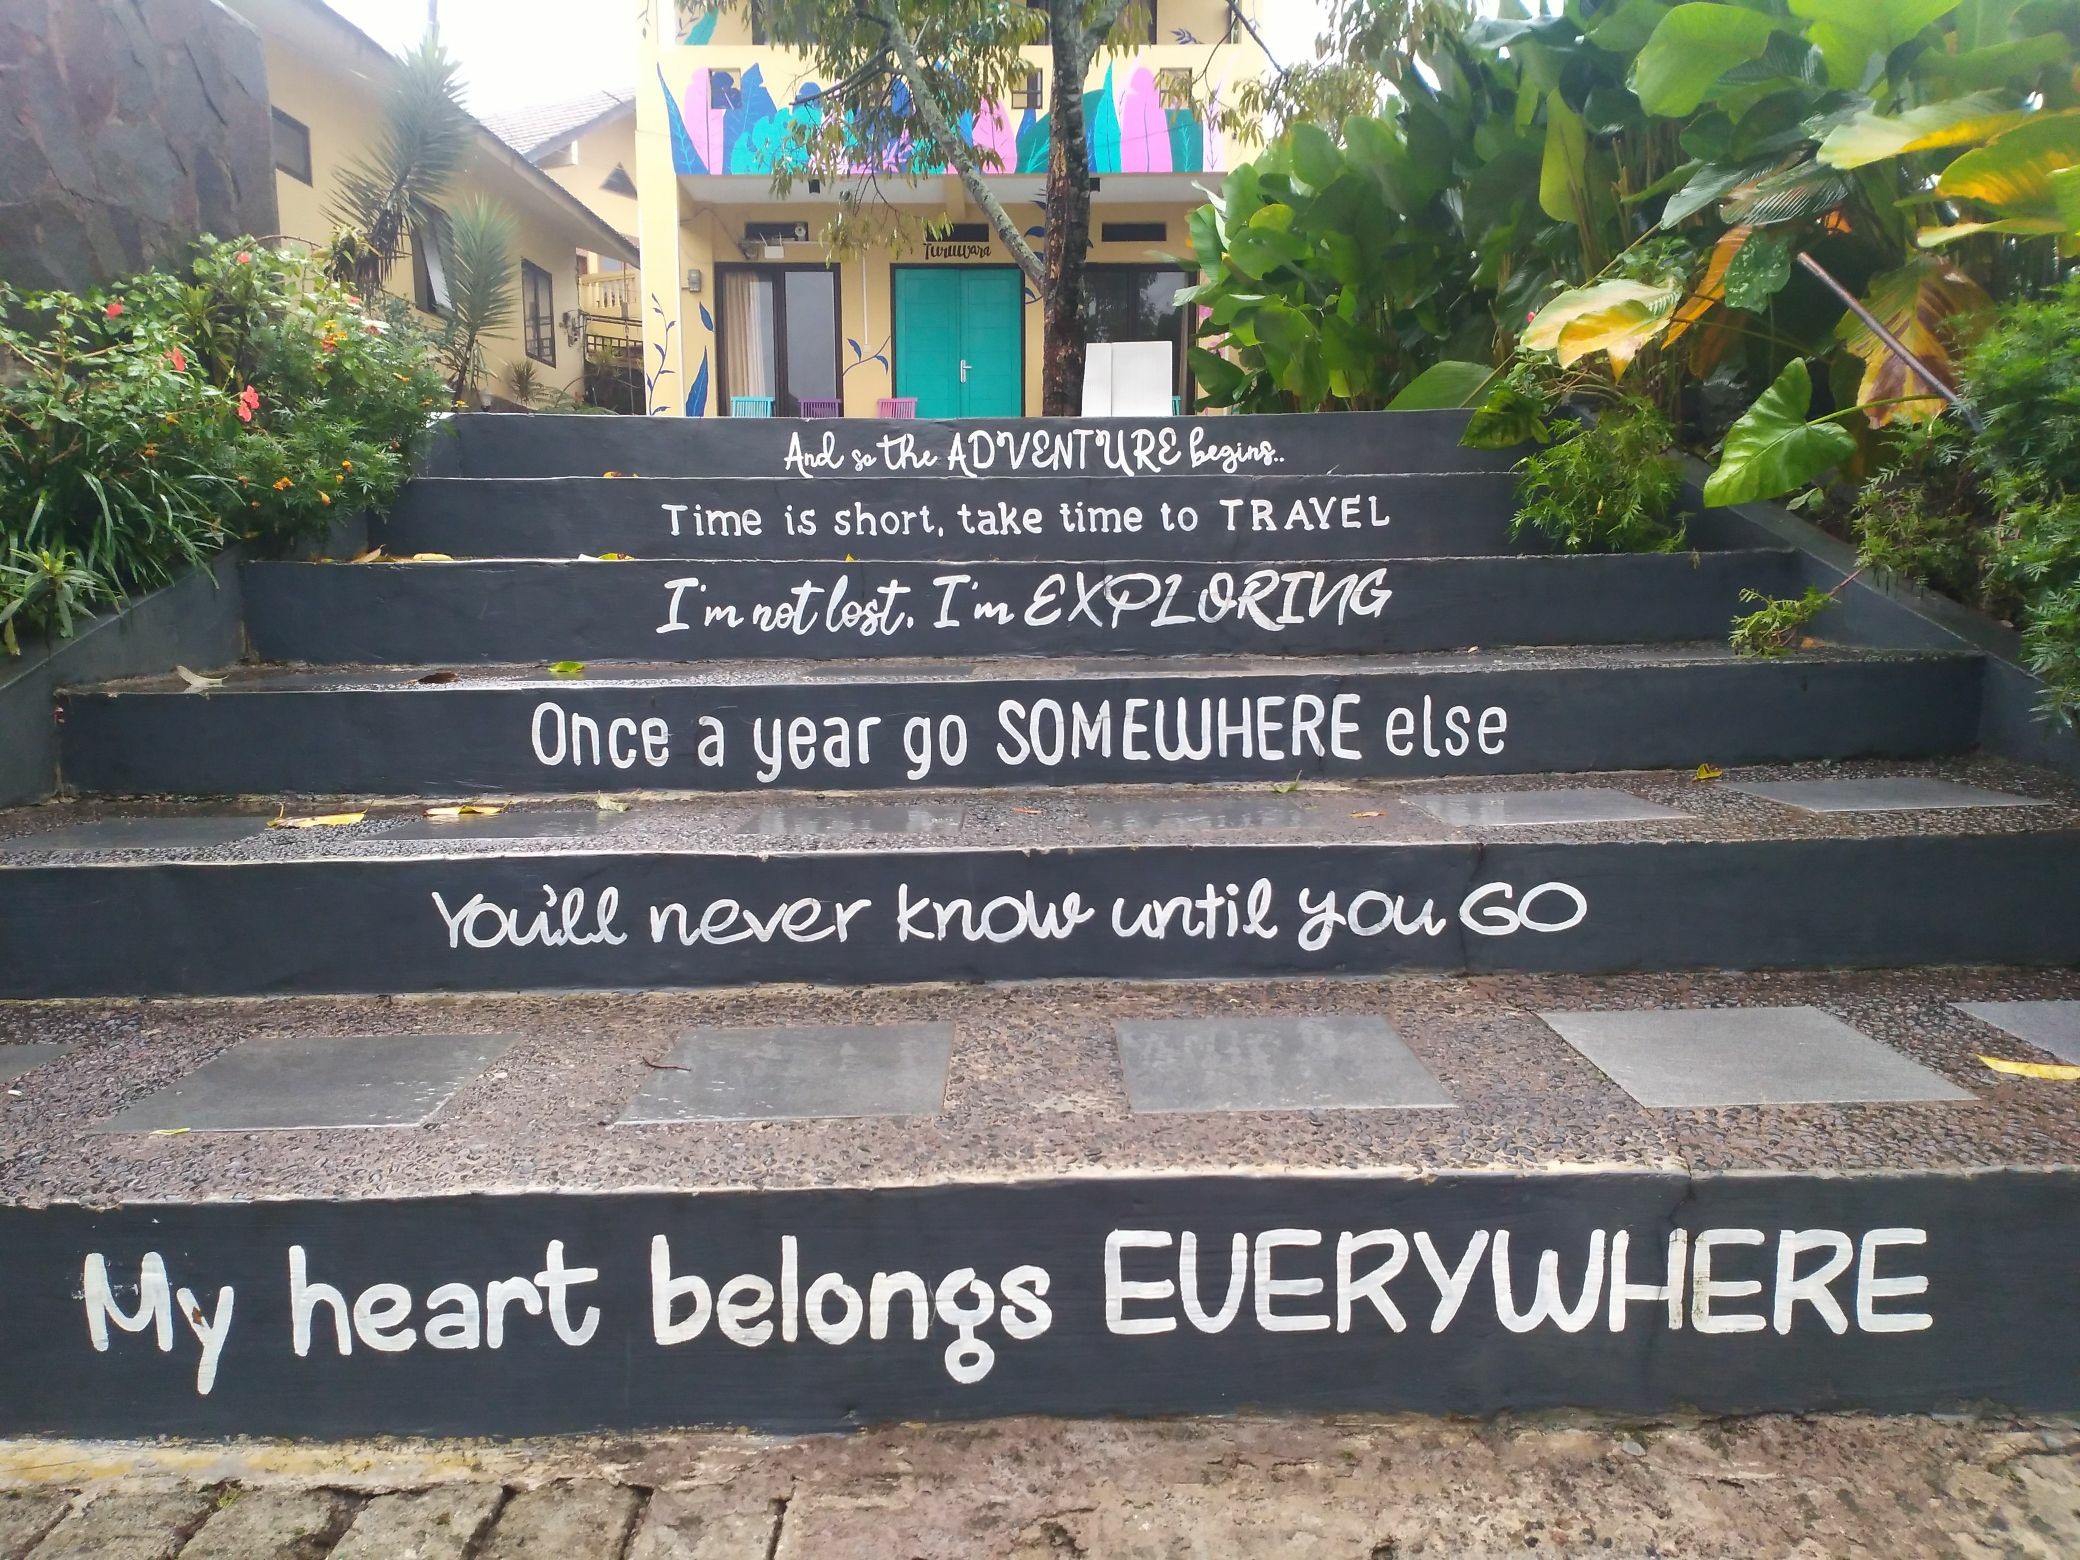 Turuwara
And so the ADVENTURE begins..
Time is short, take time to TRAVEL
I'm not lost, I'm EXPLORING
Once a year go SOMEWHERE else
You'll never know until you GO
My heart belongs EVERYWHERE